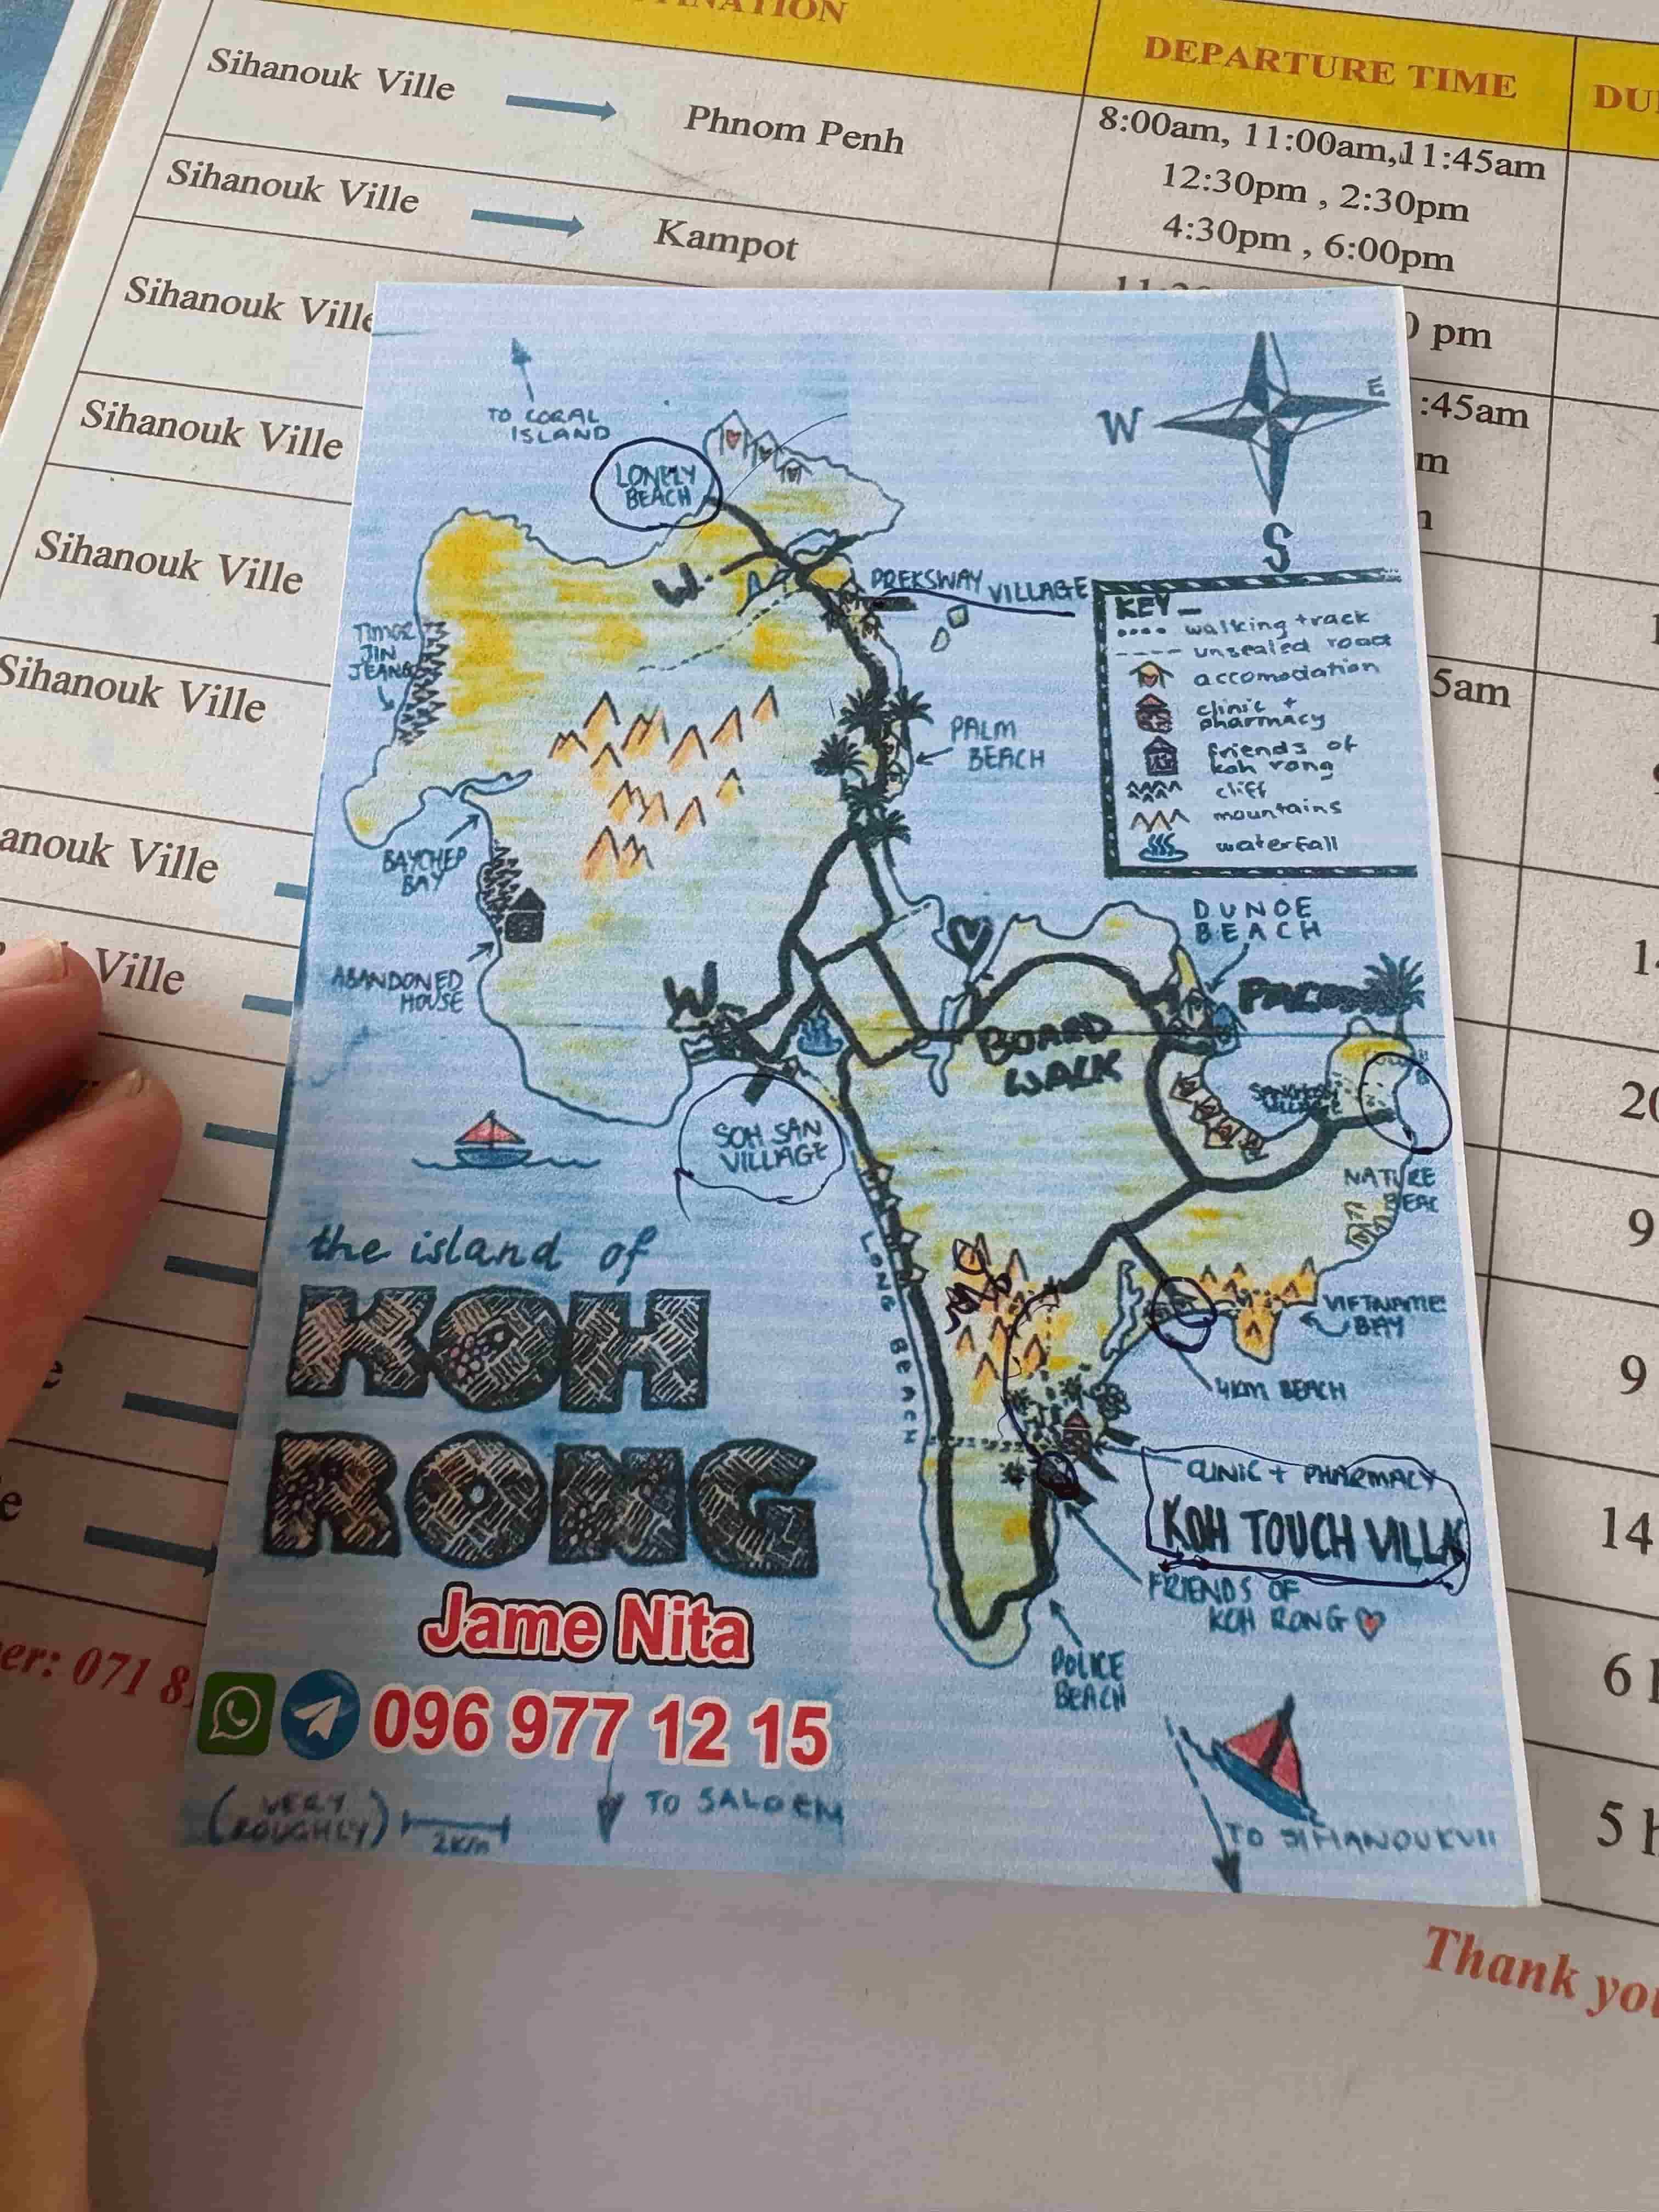 DEPARTURE TIME
Sihanouk Ville
Phnom Penh
8:00am, 11:00am,11:45am
12:30pm , 2:30pm
4:30pm , 6:00pm
Sihanouk Ville
Kampot
Sihanouk Ville
pm
Sihanouk Ville
:45am
Sihanouk Ville
Sihanouk Ville
5am
anouk Ville
Ville
TO CORAL
ISLAND
LONELY
BEACH
W
E
S
PREKSWAY VILLAGE
KEY
walking track
unsealed road
accomodation
clinic +
pharmacy
friends of
koh rong
cliff
mountains
waterfall
PALM
BEACH
BAYCHEP
BAY
ABANDONED
HOUSE
DUNOE
BEACH
W
BOARD
WALK
SOH SAN
VILLAGE
NATURE
BEAC
LONG BEACH
VIETNAME
BAY
4KM BEACH
CLINIC + PHARMACY
KOH TOUCH VILLA
FRIENDS OF
KOH RONG
POLICE
BEACH
the island of
KOH
RONG
Jame Nita
096 977 12 15
(VERY
ROUGHLY)
2km
TO SALOEM
er: 071 8
Thank you